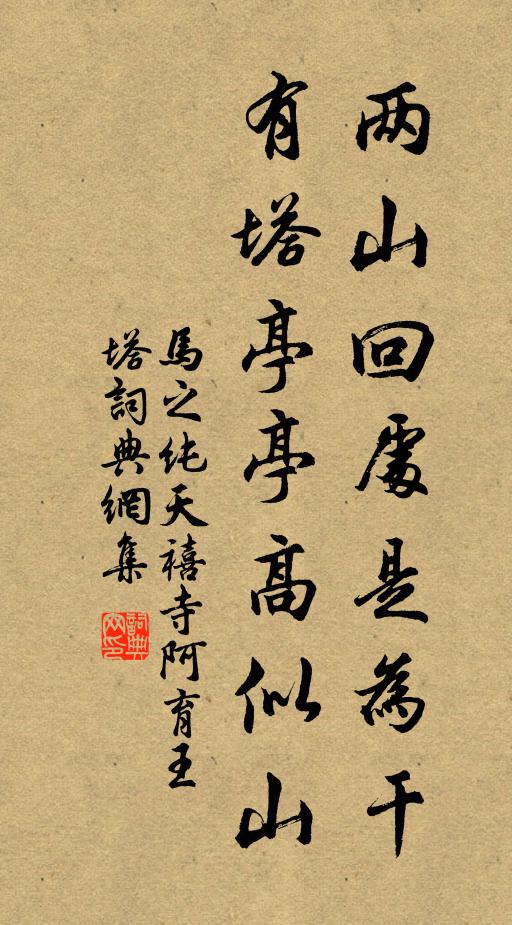 两山回處是為干
有塔亭亭高似山
馬之純天禧寺阿育王
塔詞典網集
詞典
网印